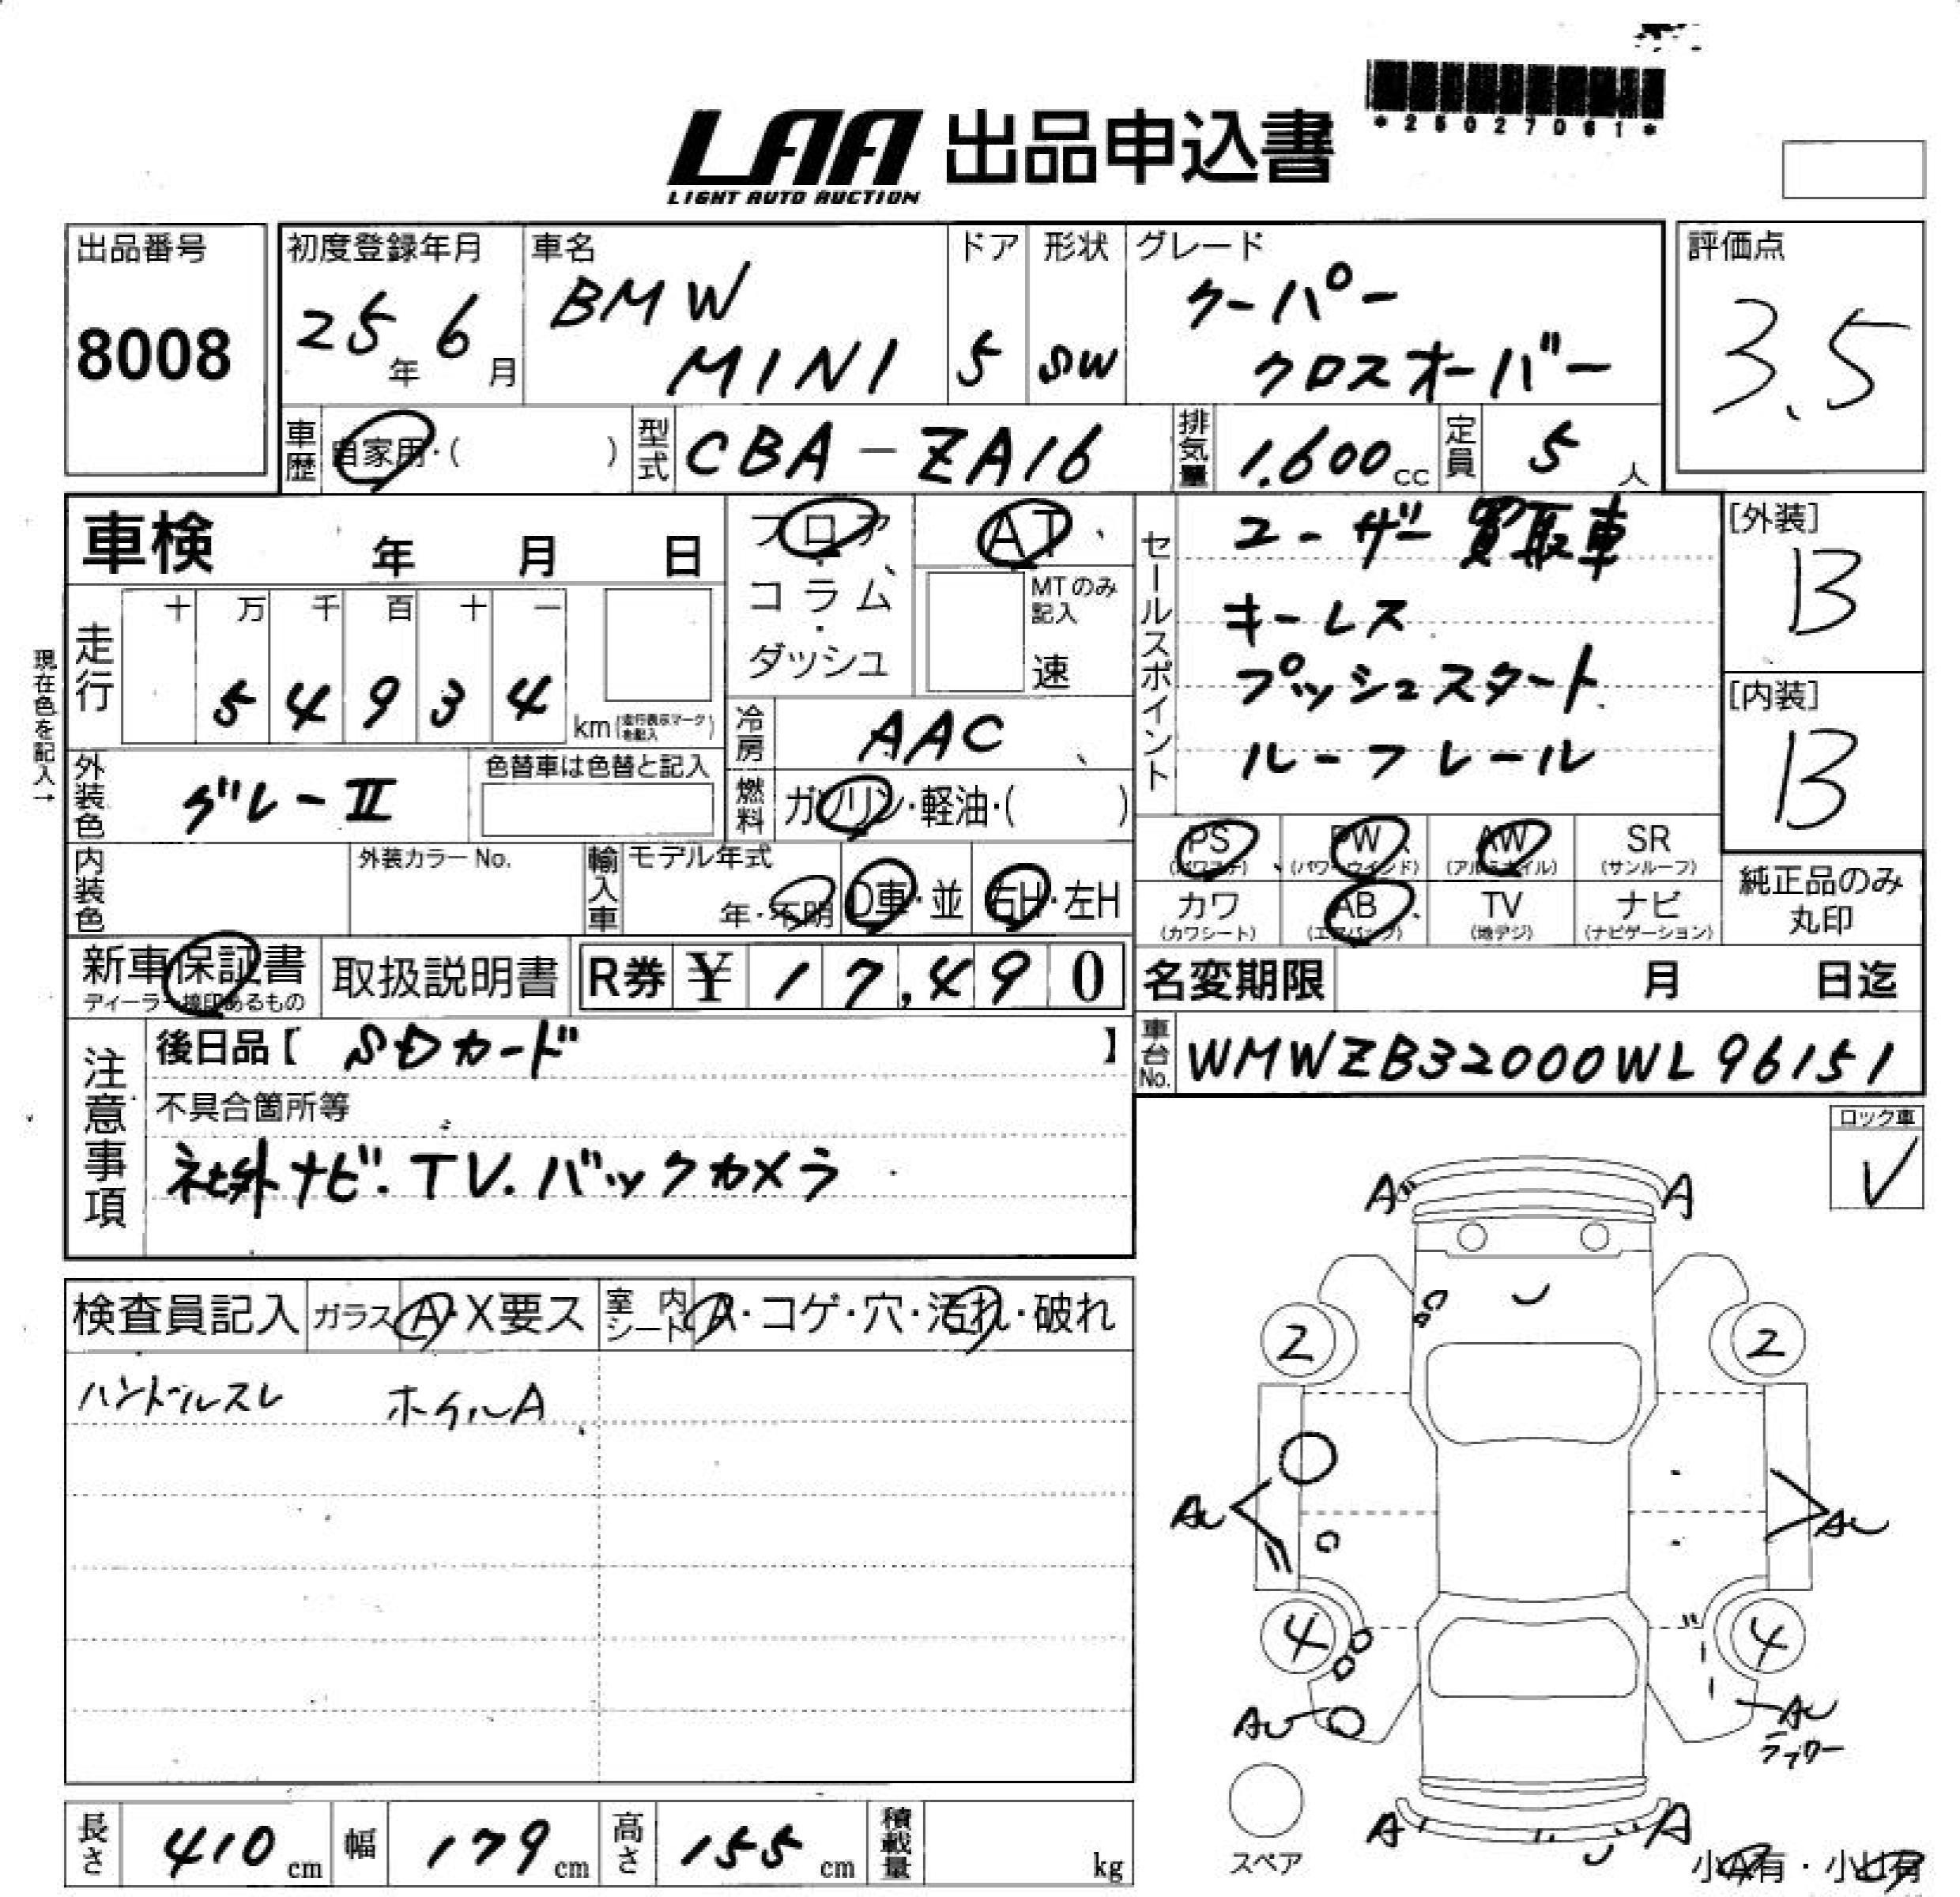 *25027061*
LAA 出品申込書
LIGHT AUTO AUCTION
出品番号
8008
初度登録年月
25年 6月
車名
BMW
MINI
ドア
5
形状
SW
グレード
クーパー
クロスオーバー
評価点
3.5
車歴
自家用・( )
型式
CBA-ZA16
排気量
1.600cc
定員
5人
車検 年 月 日
フロア
コラム・
ダッシュ
AT
MTのみ
記入
速
セールスポイント
ユーザー買取車
キーレス
プッシュスタート
ルーフレール
[外装]
B
[内装]
B
現在色を記入→
走行
十 万 千 百 十 一
5 4 9 3 4
km(走行表示マークを記入)
冷房
AAC
外装色
グレーII
色替車は色替と記入
燃料
ガソリン・軽油・( )
PS
(パワステ)
PW
(パワーウインド)
AW
(アルミホイル)
SR
(サンルーフ)
カワ
(カワシート)
AB
(エアバック)
TV
(地デジ)
ナビ
(ナビゲーション)
純正品のみ
丸印
内装色
外装カラーNo.
輸入車
モデル年式
年・不明
D車・並
右H・左H
新車保証書
ディーラー捺印あるもの
取扱説明書
R券 ¥ 17,490
名変期限 月 日迄
車台No.
WMWZB32000WL96151
注意事項
後日品【 SDカード 】
不具合箇所等
社外ナビ.TV.バックカメラ
ロック車
✓
検査員記入
ガラス
A・X要ス
室内シート
A・コゲ・穴・汚れ・破れ
ハンドルスレ ホイルA
A A
2 2
AU AU
4 4
AU AU
A A
スペア
小A有・小U有
長さ 410cm
幅 179cm
高さ 155cm
積載量 kg